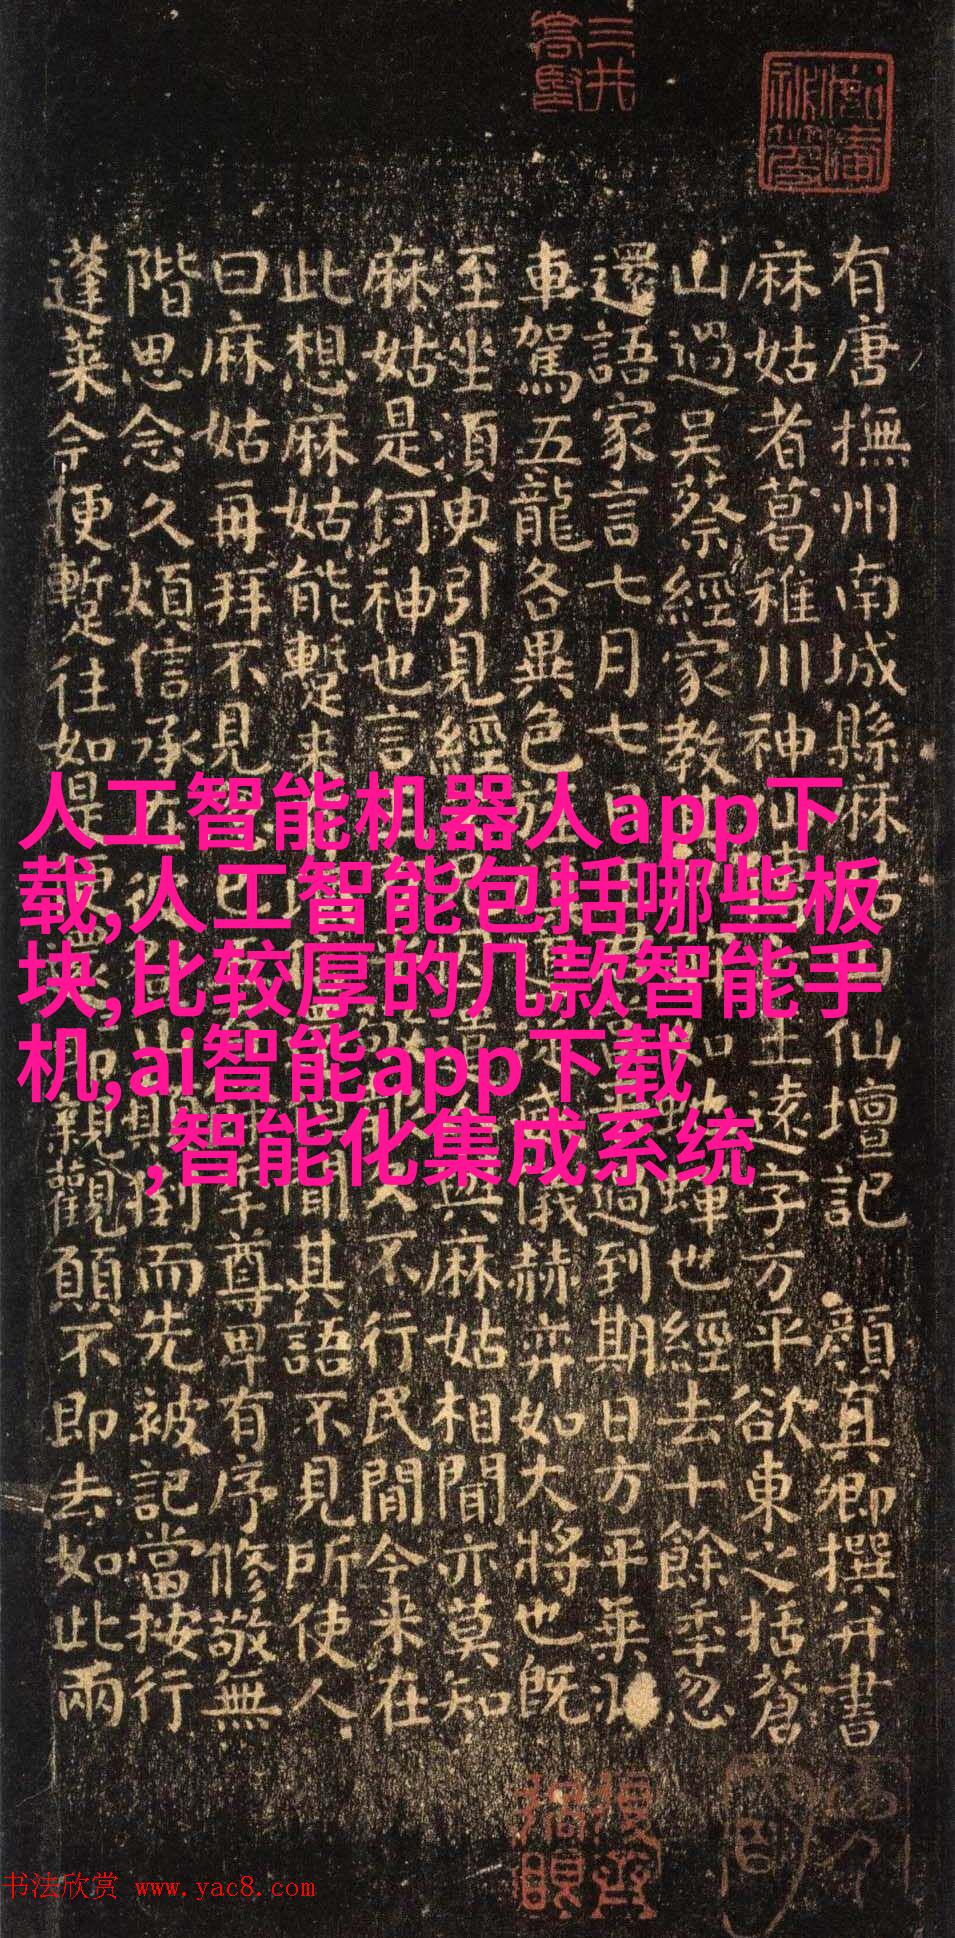 有唐撫州南城縣麻姑山仙壇記 顏真卿撰并書
麻姑者葛稚川神仙王遠字方平欲東之括蒼
山過吳蔡經家教如蟬也經去十餘年忽
還語家言七月七過到期日方平乘
車駕五龍各異色從威儀赫弈如大將也既
至坐須臾引見經與麻姑相聞亦莫知
麻姑是何神也言久不行民間今来在
此想麻姑能蹔来聞其語不見所使人
曰麻姑再拜不見已年尊卑有序修敬無
階思念久煩信承在倒而先被記當按行
蓬萊今便蹔往如是還即親觀願不即去如此兩
人工智能机器人app下
载,人工智能包括哪些板
块,比较厚的几款智能手
机,ai智能app下载
,智能化集成系统
书法欣赏 www.yac8.com